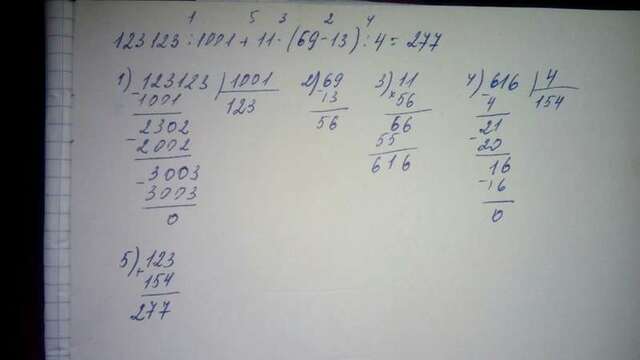 1 5 3 2 4
123123 : 1001 + 11 · (69 - 13) : 4 = 277
1) 123123 | 1001 2) 69 3) 11 4) 616 | 4
- 1001 123 - 13 × 56 - 4 154
2302 56 66 21
- 2002 55 - 20
- 3003 616 16
3003 - 16
0 0
5) + 123
154
277